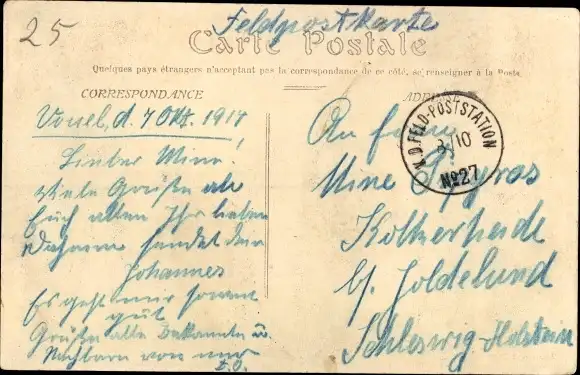 25
Feldpostkarte
Carte Postale
Quelques pays étrangers n'acceptant pas la correspondance de ce côté, se renseigner à la Poste
CORRESPONDANCE
d. 7 Okt. 1914
Lieber
Viele Grüße
Euch allen Ihr lieben
Daheim sendet
Johannes
Es geht mir
gut
Grüße alle Bekannte u.
Nachbarn von mir
ADRESSE
K.D. FELD-POSTSTATION
8/10
No 27
An
Mine
b/. Joldelund
Schleswig-Holstein